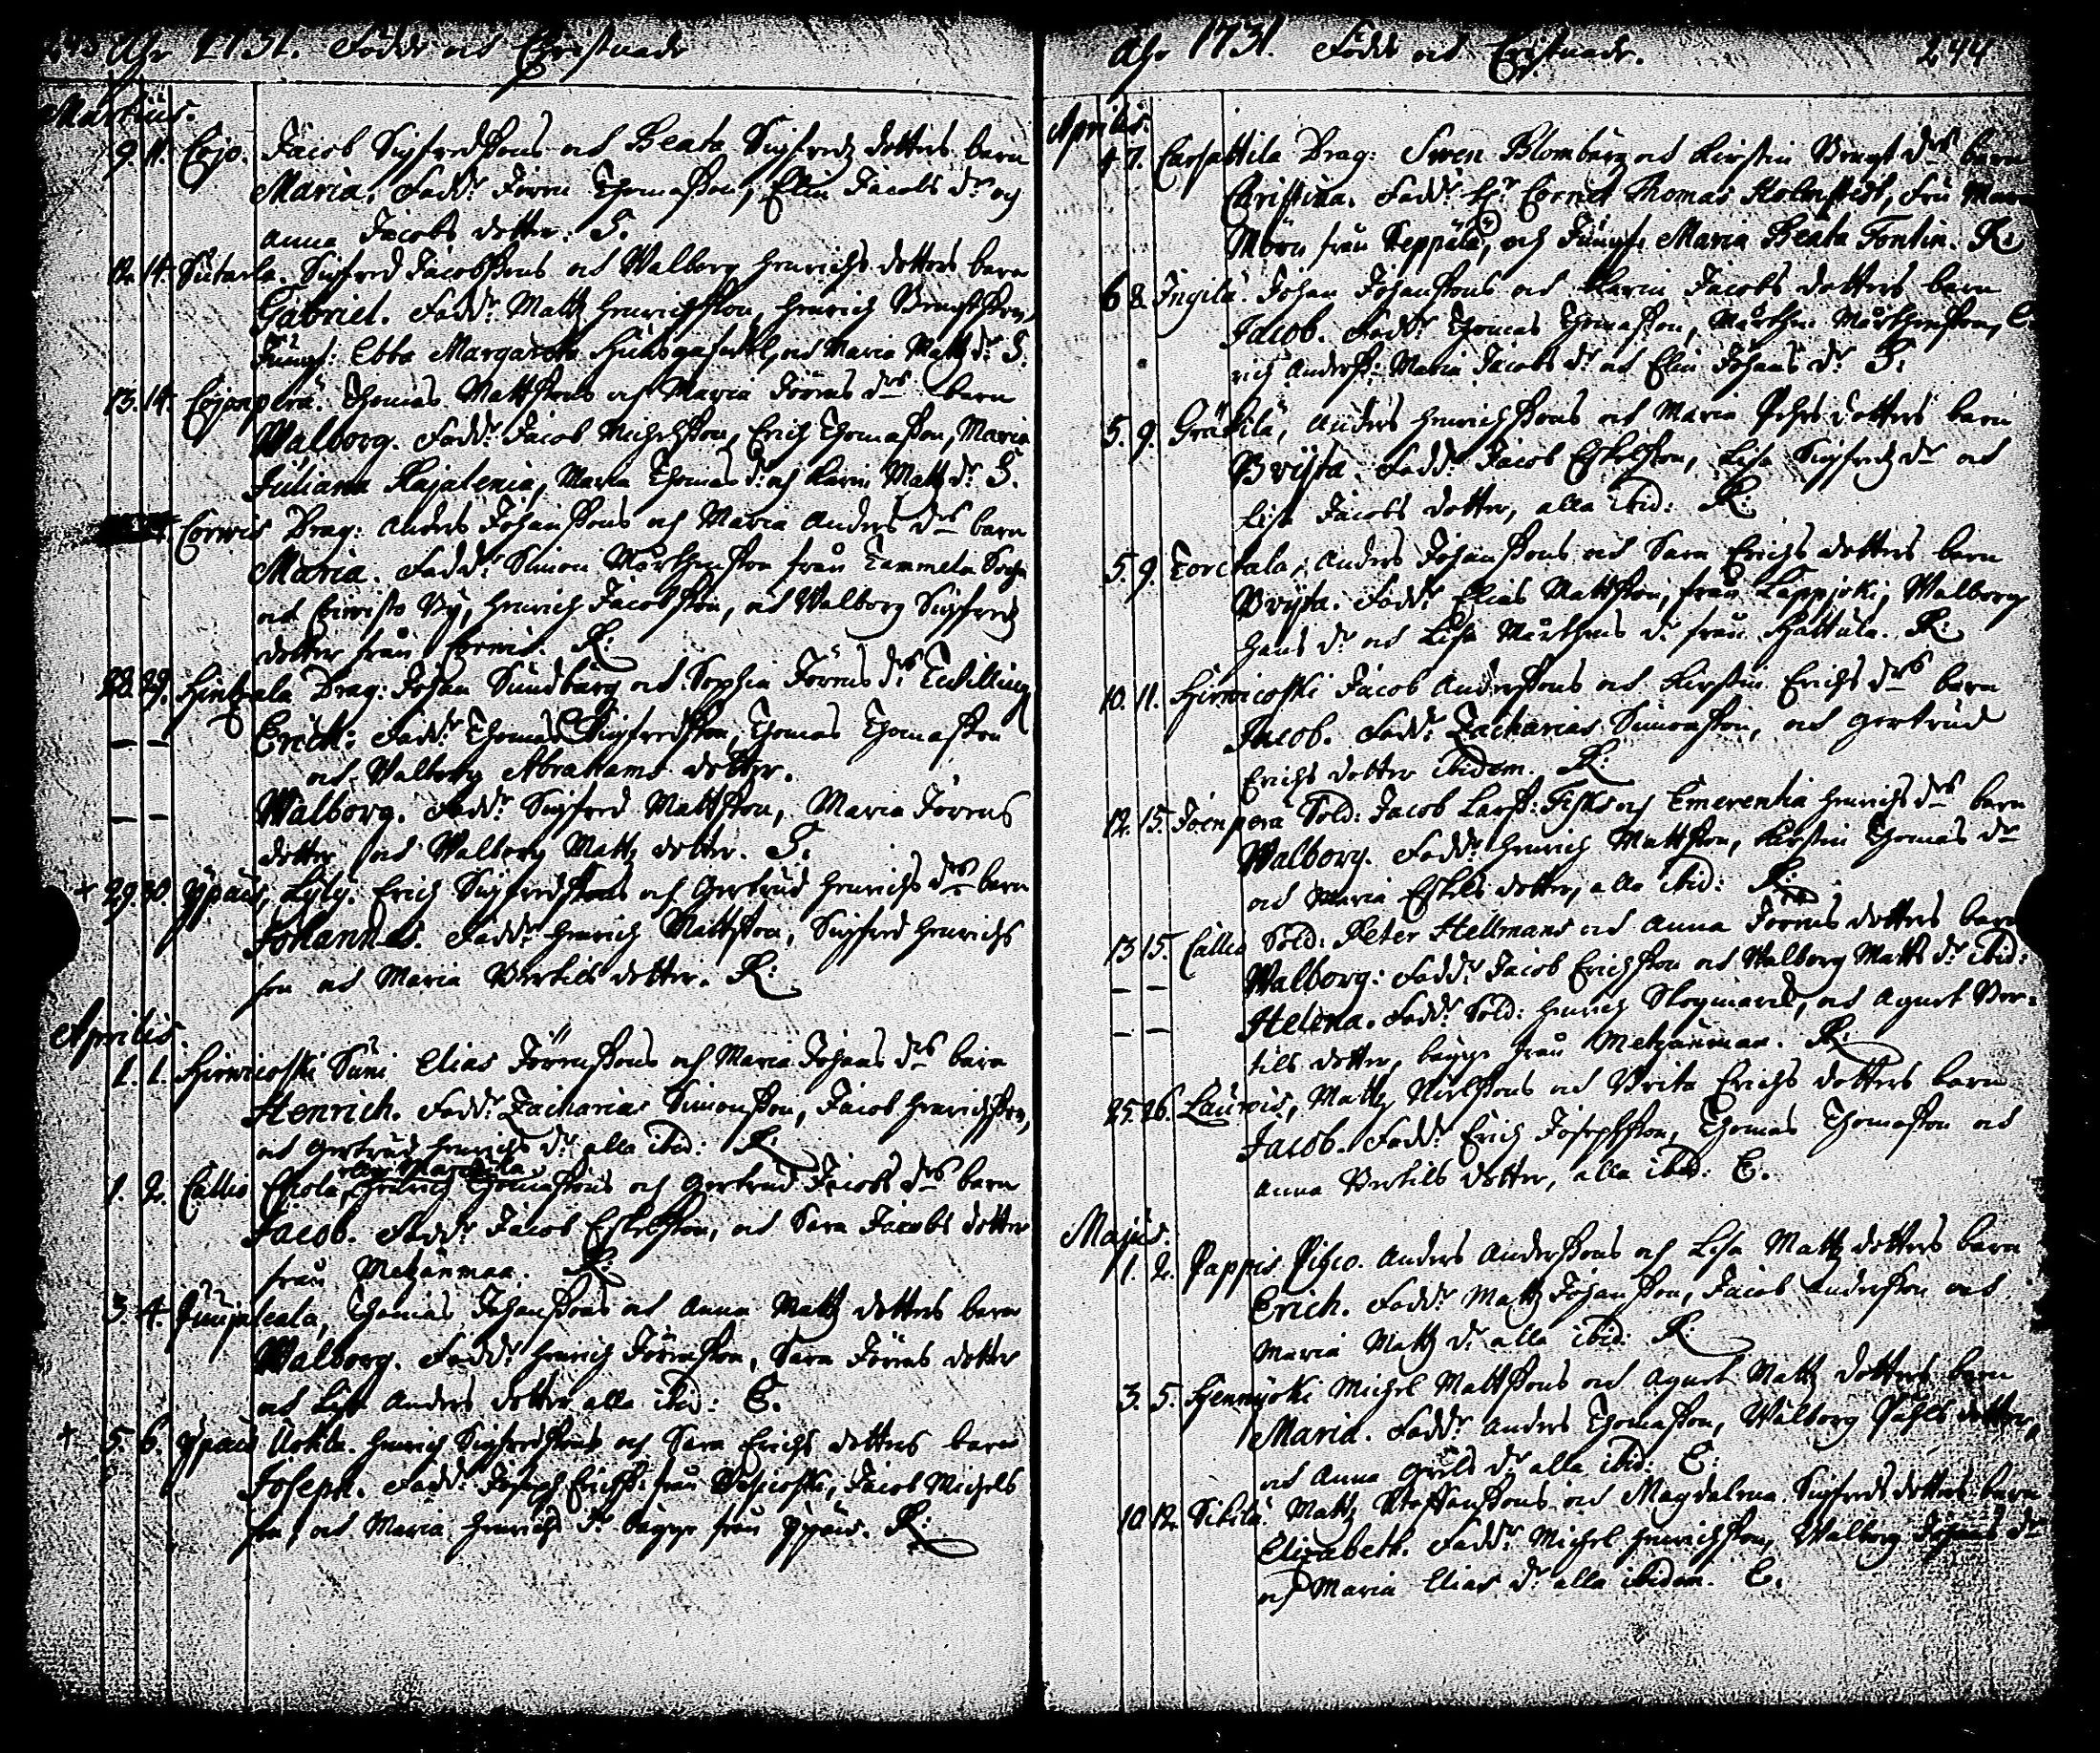 Ahr 1731. Födde och Christnade
Martius.
9. 11. Erjo. Jacob Sigfredssons och Beata Sigfredz dotters barn
Maria. Fadd: Jören Thomasson, Elin Jacobs dr och
Anna Jacobs dotter. S.
12. 14. Sutarla. Sigfred Jacobssons och Walborg Henrichs dotters barn
Gabriel. Fadd: Matts Henrichsson, Henrich
Jungf: Ebba Margareta och Maria Mattz dr. S.
13. 14. Thomas Mattssons och Maria Jörens drs barn
Walborg. Fadd: Jacob Michelsson, Erich Thomasson, Maria
Juliana Kajalenia, Maria Thomas dr och Karin Mattz dr. S.
Corwis Drag: Anders Johanssons och Maria Anders drs barn
Maria. Fadd: Simon Mårthensson från Tammela Sochn
och By, Henrich Jacobsson, och Walborg Sigfredz
dotter från Corwis. R:
28. 29. Hintzala Drag: Johan Sundbärg och Sophia Jörens drs Twillling
Erich: Fadd: Thomas Sigfredsson, Thomas Thomasson
och Walborg Abrahams dotter.
Walborg. Fadd: Sigfred Mattsson, Maria Jörens
dotter och Walborg Mattz dotter. S.
+ 29. 30. Ypäis, Lyly. Erich Sigfredssons och Gertrud Henrichs drs barn
Johannes. Fadd: Henrich Mattsson, Sigfred Henrichs
son och Maria Bertils dotter. R:
Aprilis.
1. 1. Hirwicoski Suni Elias Jörenssons och Maria Johans drs barn
Henrich. Fadd: Zacharias Simonsson, Jacob Henrichsson,
och Gertrud Henrichs dr alla ibid: R:
1. 2. Callio Henrich Thomassons och Gertrud Jacobs drs barn
Jacob. Fadd: Jacob Eskelsson, och Sara Jacobs dotter
från Metzänmaa. R:
3. 4. Thomas Johanssons och Anna Mattz dotters barn
Walborg. Fadd: Henrich Jörensson, Sara Jörens dotter
och Lisa Anders dotter alla ibid: E.
+ 5. 6. Ypäis Uotila. Henrich Sigfredssons och Sara Erichs dotters barn
Joseph. Fadd: Joseph Erichss: från Jacob Michels
son, och Maria Henrichs dr bägge från Ypäis. R:
Ahr 1731. Födde och Christnade. 244
Aprilis.
4. 7. Carhattila Drag: Swen Blombärg och Kirstin Bengt drs barn
Christina. Fadd: Hr Cornet Thomas Fru
Mörn från Seppälä, och Jungf: Maria Beata Fontin. R:
6. 8. Ingilä. Johan Johanssons och Karin Jacobs dotters barn
Jacob. Fadd: Thomas Thomasson, Mårthen Mårthensson,
rich Anderss: Maria Jacobs dr och Elin Johans dr. S:
5. 9. Gräkilä, Anders Henrichssons och Maria Pehrs dotters barn
Brijta. Fadd: Jacob Eskelsson, Lisa Sigfredz dr och
Lisa Jacobs dotter, alla ibid: R:
5. 9. Torckala, Anders Johanssons och Sara Erichs dotters barn
Brijta. Fadd: Elias Mattsson, från Lappjoki, Walborg
Hans dr och Lisa Mårthens dr från Hattula. R:
10. 11. Hirwicoski Jacob Anderssons och Kirstin Erichs drs barn
Jacob. Fadd: Zacharias Simonsson, och Gertrud
Erichs dotter ibidem. R:
12. 15. Joenpera Sold: Jacob Larss: Fisks och Emerentia Henrichs drs barn
Walborg. Fadd: Henrich Mattsson, Kirstin Thomas dr
och Maria Eskels dotter, alla ibid: R:
13. 15. Callio Sold: Peter Hellmans och Anna Jörens dotters barn
Walborg: Fadd: Jacob Erichsson och Walborg Matts dr ibid:
Helena. Fadd: Sold: Henrich och Agnet Ber-
tils dotter, bägge från Metzänmaa. R:
25. 26. Lauwis, Mattz Nielssons och Brita Erichs dotters barn
Jacob. Fadd: Erich Josephsson, Thomas Thomasson och
Anna Bertils dotter, alla ibid: E.
Majus.
1. 2. Pappis Anders Anderssons och Lisa Mattz dotters barn
Erich. Fadd: Mattz Johansson, Jacob Andersson och
Maria Mattz dr alla ibid: R:
3. 5. Hennijoki Michel Mattssons och Agnet Mattz dotters barn
Maria. Fadd: Anders Thomasson, Walborg Påhls dotter,
och Anna dr alla ibid: E:
10. 12. Sikilä. Mattz Staffanssons och Magdalena Sigfreds dotters barn
Elizabeth. Fadd: Michel Henrichsson, Walborg Johans dr
och Maria Elias dr alla ibidem. E.